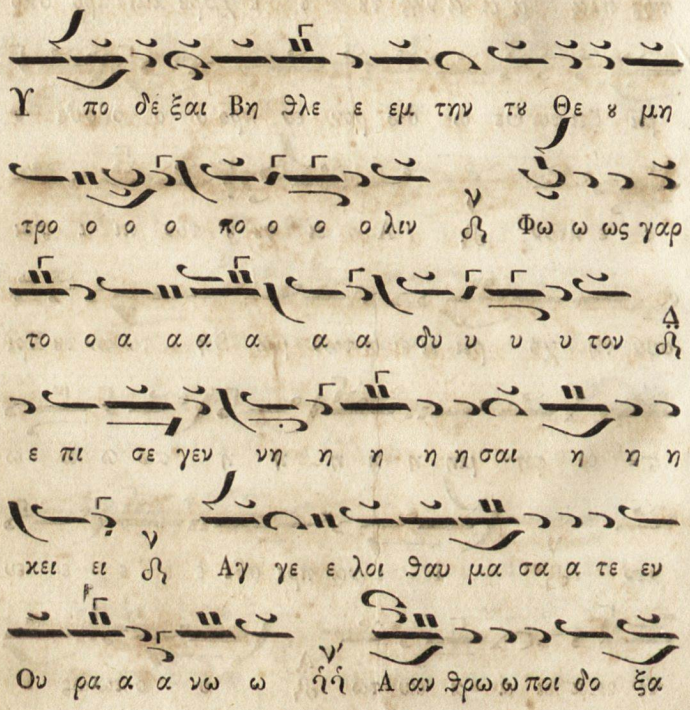 Υ πο δε ξαι Βη θλε ε εμ την τȣ Θε ȣ μη
τρο ο ο ο πο ο ο ο λιν Φω ω ως γαρ
το ο α α α α α α δυ υ υ υ τον
ε πι σε γεν νη η η η η σαι η η η
κει ει Αγ γε ε λοι θαυ μα σα α τε εν
Ου ρα α α νω ω Α αν θρω ω ποι δο ξα